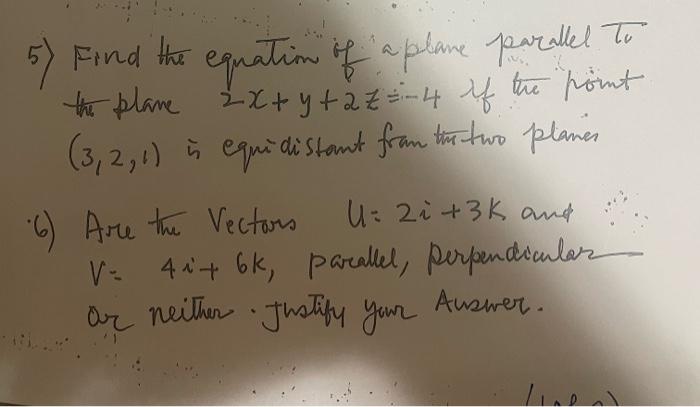 5) Find the equation of a plane parallel To
the plane 2x + y + 2z = -4 if the point
(3, 2, 1) is equidistant from the two planes
6) Are the Vectors U = 2i + 3K and
V = 4i + 6K, parallel, perpendicular
or neither. Justify your Answer.